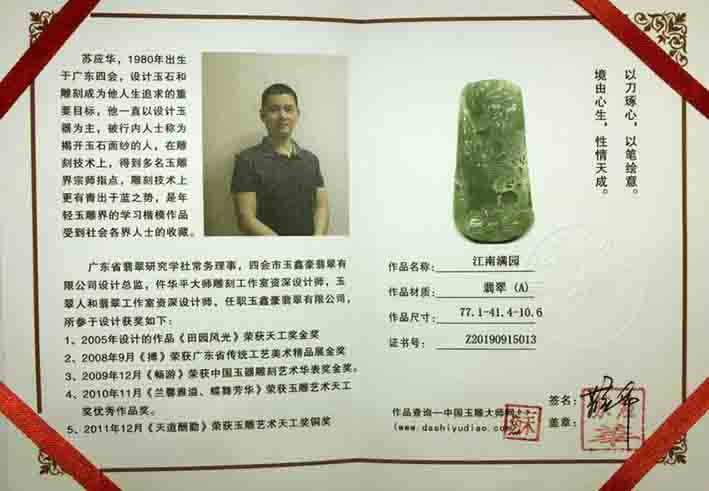 苏应华，1980年出生
于广东四会，设计玉石和
雕刻成为他人生追求的重
要目标，他一直以设计玉
器为主，被行内人士称为
揭开玉石面纱的人，在雕
刻技术上，得到多名玉雕
界宗师指点，雕刻技术上
更有青出于蓝之势，是年
轻玉雕界的学习楷模作品
受到社会各界人士的收藏。
广东省翡翠研究学社常务理事，四会市玉鑫豪翡翠有
限公司设计总监，仵华平大师雕刻工作室资深设计师，玉
翠人和翡翠工作室资深设计师、任职玉鑫豪翡翠有限公司，
所参于设计获奖如下：
1、2005年设计的作品《田园风光》荣获天工奖金奖
2、2008年9月《搏》荣获广东省传统工艺美术精品展金奖
3、2009年12月《畅游》荣获中国玉器雕刻艺术华表奖金奖。
4、2010年11月《兰馨雅溢、蝶舞芳华》荣获玉雕艺术天工
奖优秀作品奖。
5、2011年12月《天道酬勤》荣获玉雕艺术天工奖铜奖
以刀琢心，以笔绘意。
境由心生，性情天成。
作品名称： 江南满园
作品材质： 翡翠（A）
作品尺寸： 77.1-41.4-10.6
证书号： Z20190915013
签名：
盖章：
作品查询—中国玉雕大师网
(www.dashiyudiao.com)